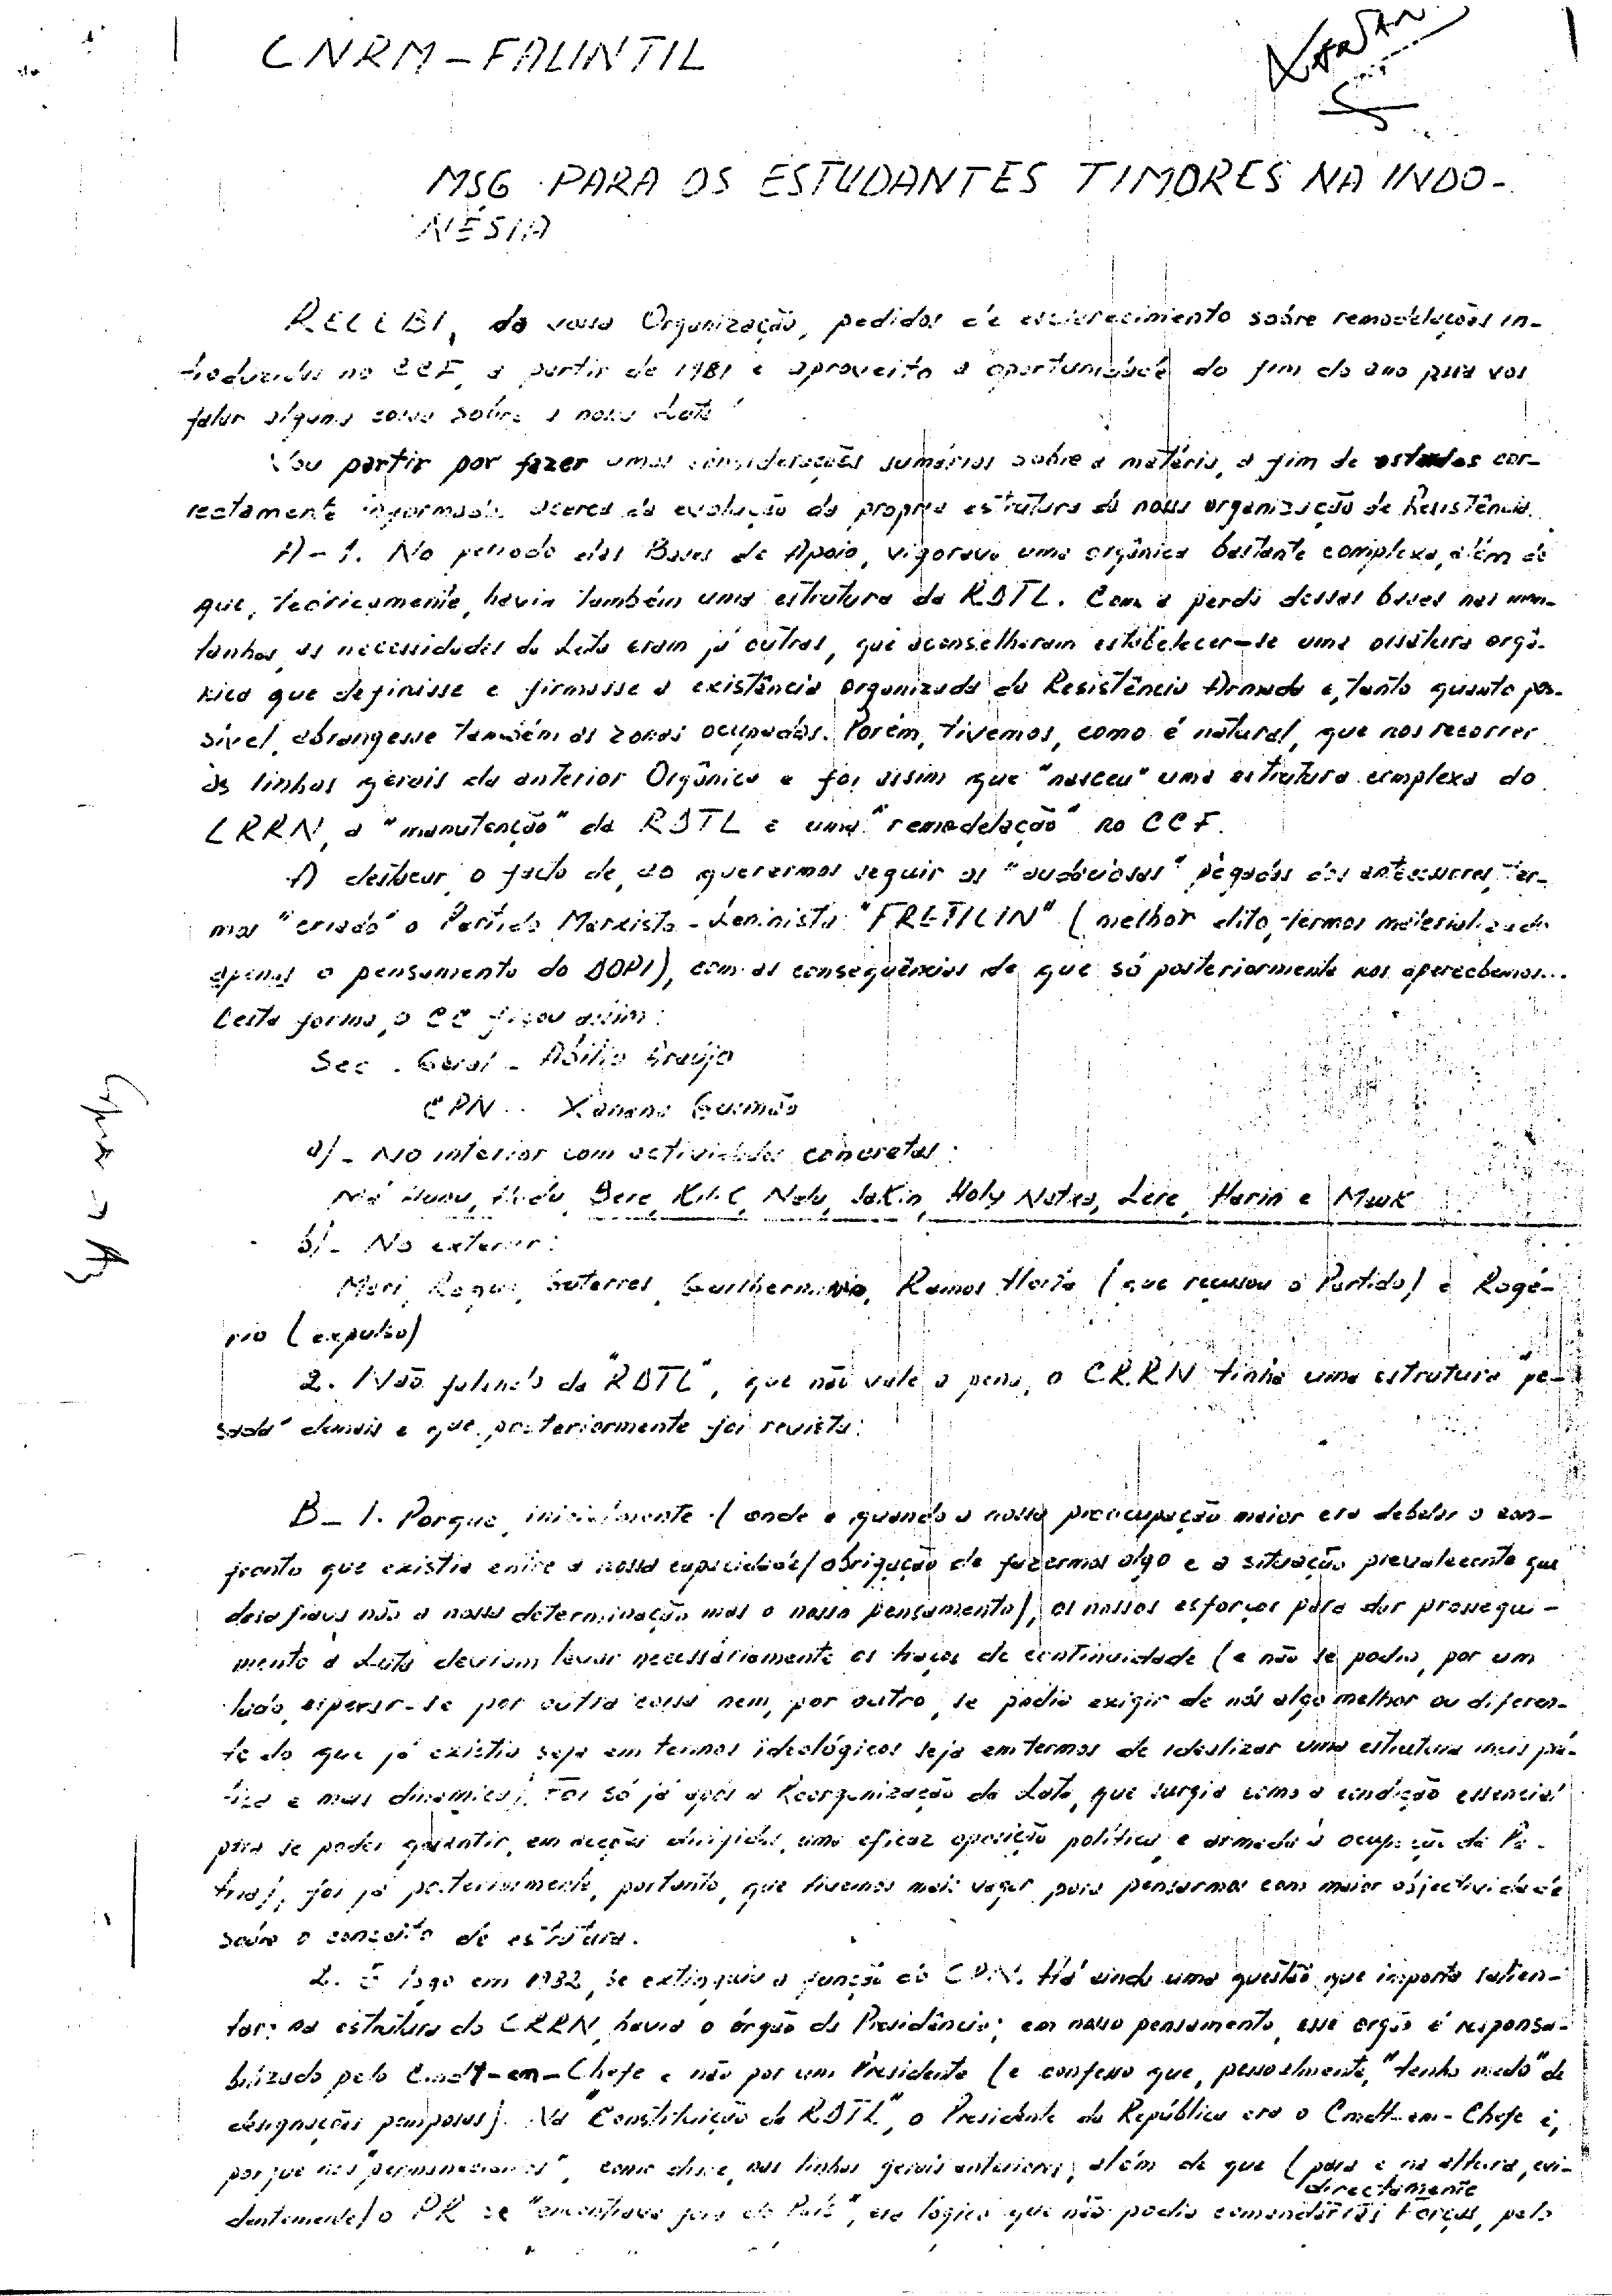 CNRM-FALINTIL
MSG PARA OS ESTUDANTES TIMORES NA INDO-
NÉSIA
RECEBI, da vossa Organização, pedidos de esclarecimento sobre remodelações in-
troduzidas no CCF, a partir de 1981 e aproveito a oportunidade do fim do ano para vos
falar alguma coisa sobre a nossa Luta
Vou partir por fazer umas considerações sumárias sobre a matéria, a fim de estardes cor-
rectamente informados acerca da evolução da propria estrutura da nossa organização de Resistência.
A-1. No periodo das Bases de Apoio, vigorava uma orgânica bastante complexa, além de
que, teóricamente, havia também uma estrutura da RDTL. Com a perda dessas bases nas mon-
tanhas, as necessidades da Luta eram já outras, que aconselharam estabelecer-se uma ossatura orgâ-
nica que definisse e firmasse a existência organizada da Resistência Armada e, tanto quanto pos-
sivel, abrangesse também as zonas ocupadas. Porém, tivemos, como é natural, que nos recorrer
às linhas gerais da anterior Orgânica e foi assim que "nasceu" uma estrutura complexa do
CRRN, a "manutenção" da RDTL e uma "remodelação" no CCF.
A destacar, o facto de, ao querermos seguir as "audaciosas" pegadas dos antecessores, ter-
mos "criado" o Partido Marxista-Leninista "FRETILIN" (melhor dito, termos materializado
apenas o pensamento do DOPI), com as consequências de que só posteriormente nos apercebemos...
Desta forma, o CC ficou assim:
Sec. Geral - Abílio Araújo
CPN - Xanana Gusmão
a)- No interior com actividades concretas:
Má Hunu, Hudu, Bere, Kilik, Nelu, Sakin, Holy Natxa, Lere, Harin e Mauk
b)- No exterior:
Mari, Roque, Guterres, Guilhermina, Ramos Horta (que recusou o Partido) e Rogé-
rio (expulso)
2. Não falando da "RDTL", que não vale a pena, o CRRN tinha uma estrutura "pe-
sada" demais e que posteriormente foi revista.
B-1. Porque, inicialmente (onde e quando a nossa preocupação maior era debelar o con-
fronto que existia entre a nossa capacidade/obrigação de fazermos algo e a situação prevalecente que
desafiava não a nossa determinação mas o nosso pensamento), os nossos esforços para dar prossegui-
mento à Luta deviam levar necessáriamente os traços de continuidade (e não se podia, por um
lado, esperar-se por outra coisa nem, por outro, se podia exigir de nós algo melhor ou diferen-
te do que já existia seja em termos ideológicos seja em termos de idealizar uma estrutura mais prá-
tica e mais dinamica). Foi só já após a Reorganização da Luta, que surgia como a condição essencial
para se poder garantir, em acções dirigidas, uma eficaz oposição política e armada à ocupação da Pá-
tria), foi já posteriormente, portanto, que tivemos mais vagar para pensarmos com maior objectividade
sobre o conceito de estrutura.
2. E logo em 1982, se extinguiu a função do CPN. Há ainda uma questão que importa salien-
tar: na estrutura do CRRN, havia o órgão da Presidência; em nosso pensamento, esse orgão é responsa-
bilizado pelo Cmdt-em-Chefe e não por um Presidente (e confesso que, pessoalmente, "tenho medo" de
designações pomposas). Na "Constituição da RDTL", o Presidente da República era o Cmdt-em-Chefe e,
porque nos "permanecíamos", como disse, nas linhas gerais anteriores, além de que (para e na altura, evi-
dentemente) o PR se "encontrava fora do País", era lógico que não podia comandar directamente as Forças, pelo